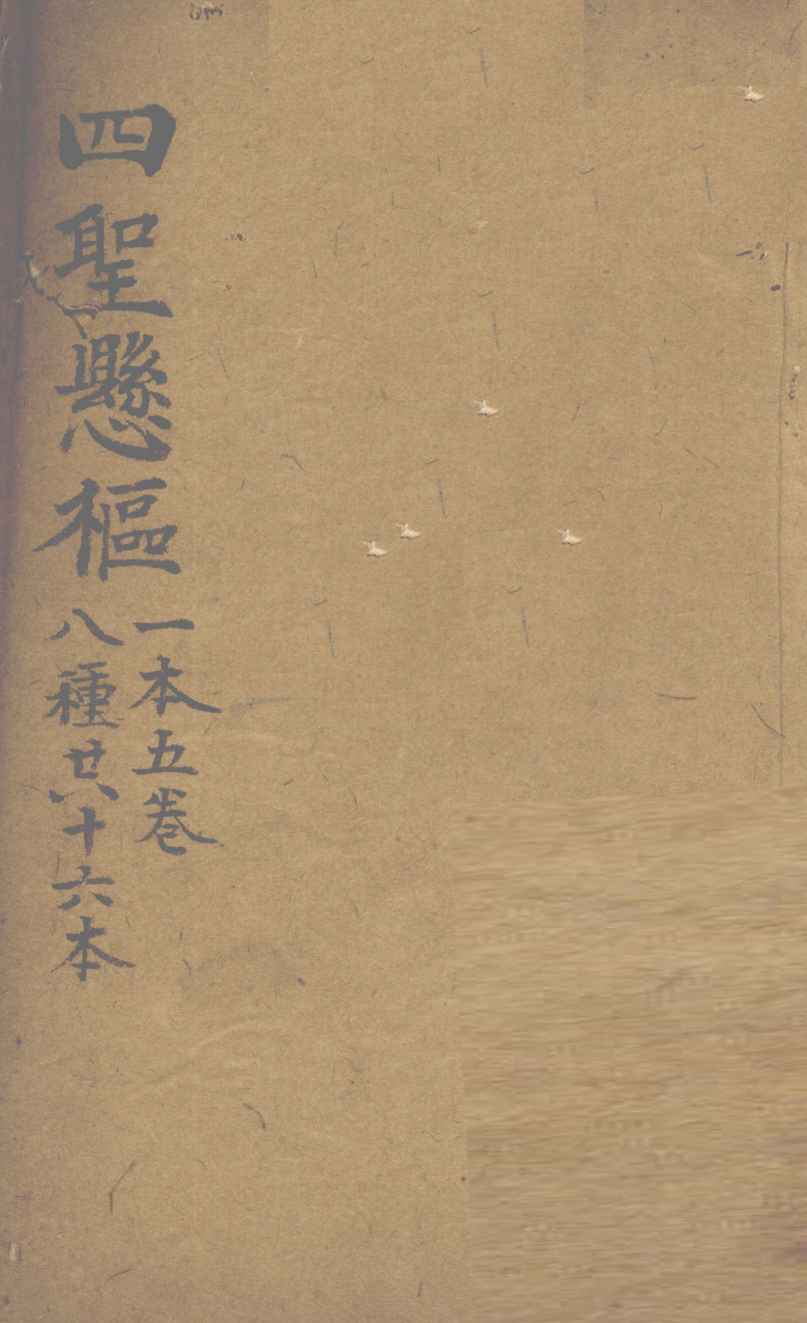 四聖懸樞
一本五卷
八種共十六本